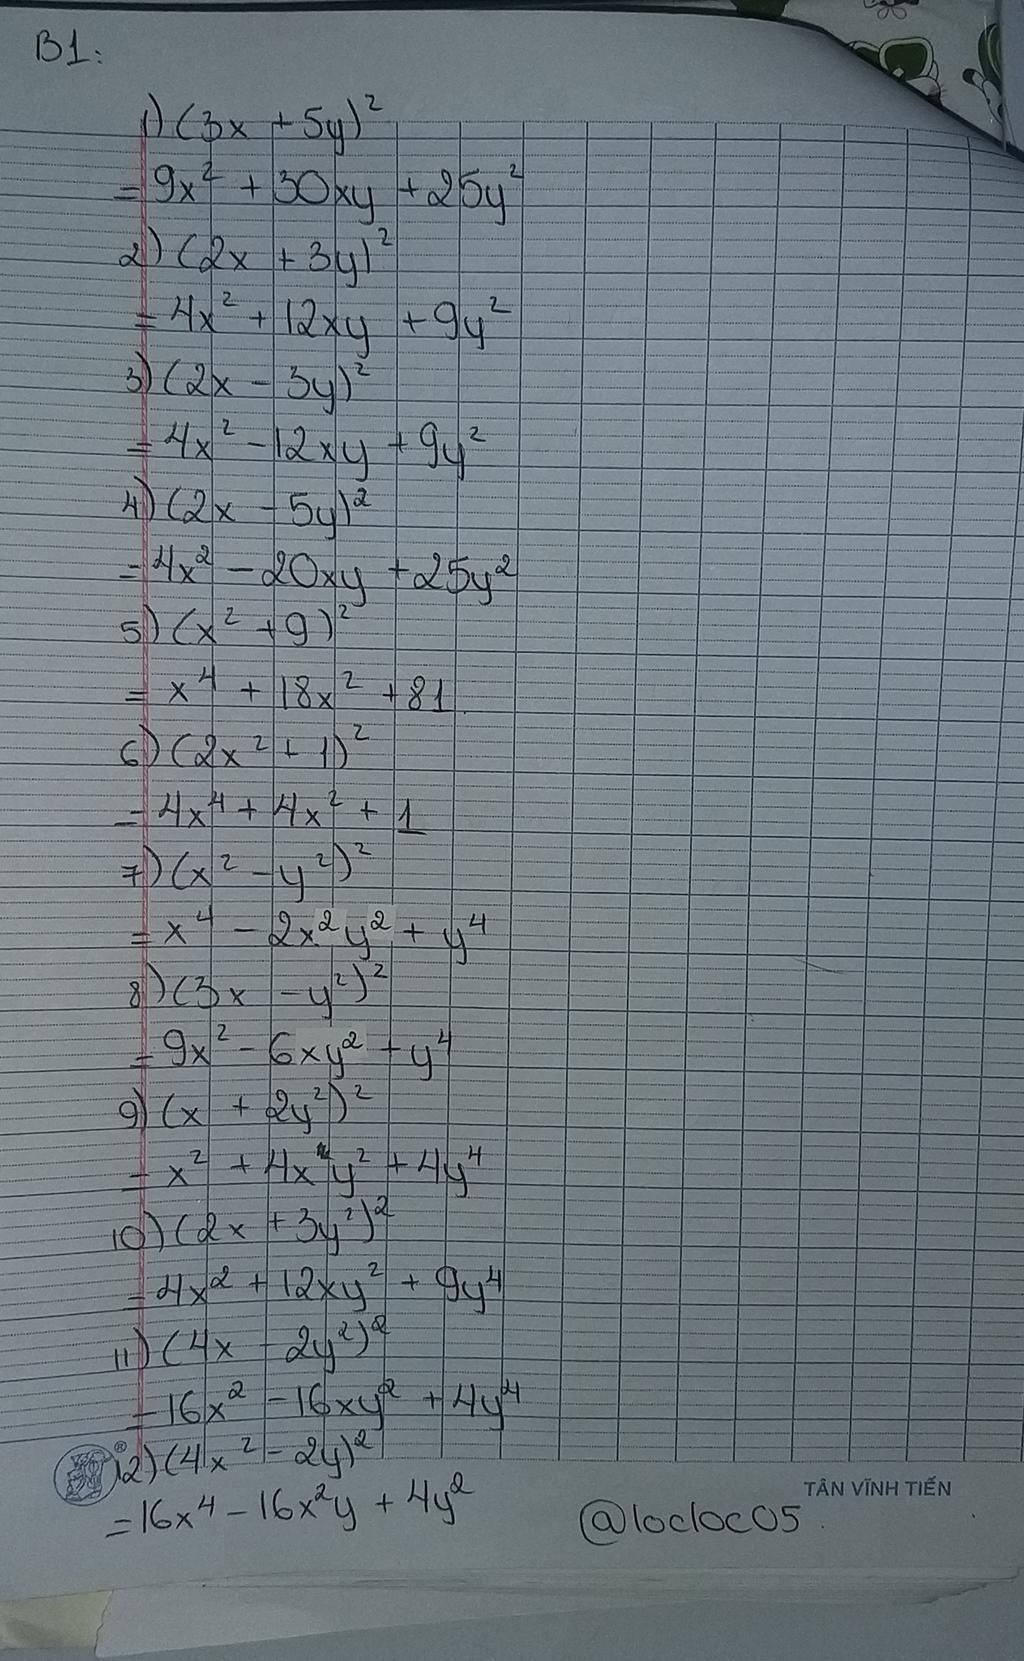 B1:
1) (3x + 5y)²
= 9x² + 30xy + 25y²
2) (2x + 3y)²
= 4x² + 12xy + 9y²
3) (2x - 3y)²
= 4x² - 12xy + 9y²
4) (2x - 5y)²
= 4x² - 20xy + 25y²
5) (x² + 9)²
= x⁴ + 18x² + 81
6) (2x² + 1)²
= 4x⁴ + 4x² + 1
7) (x² - y²)²
= x⁴ - 2x²y² + y⁴
8) (3x - y²)²
= 9x² - 6xy² + y⁴
9) (x + 2y²)²
= x² + 4xy² + 4y⁴
10) (2x + 3y²)²
= 4x² + 12xy² + 9y⁴
11) (4x - 2y²)²
= 16x² - 16xy² + 4y⁴
12) (4x² - 2y)²
= 16x⁴ - 16x²y + 4y²
TÂN VĨNH TIẾN
@locloc05